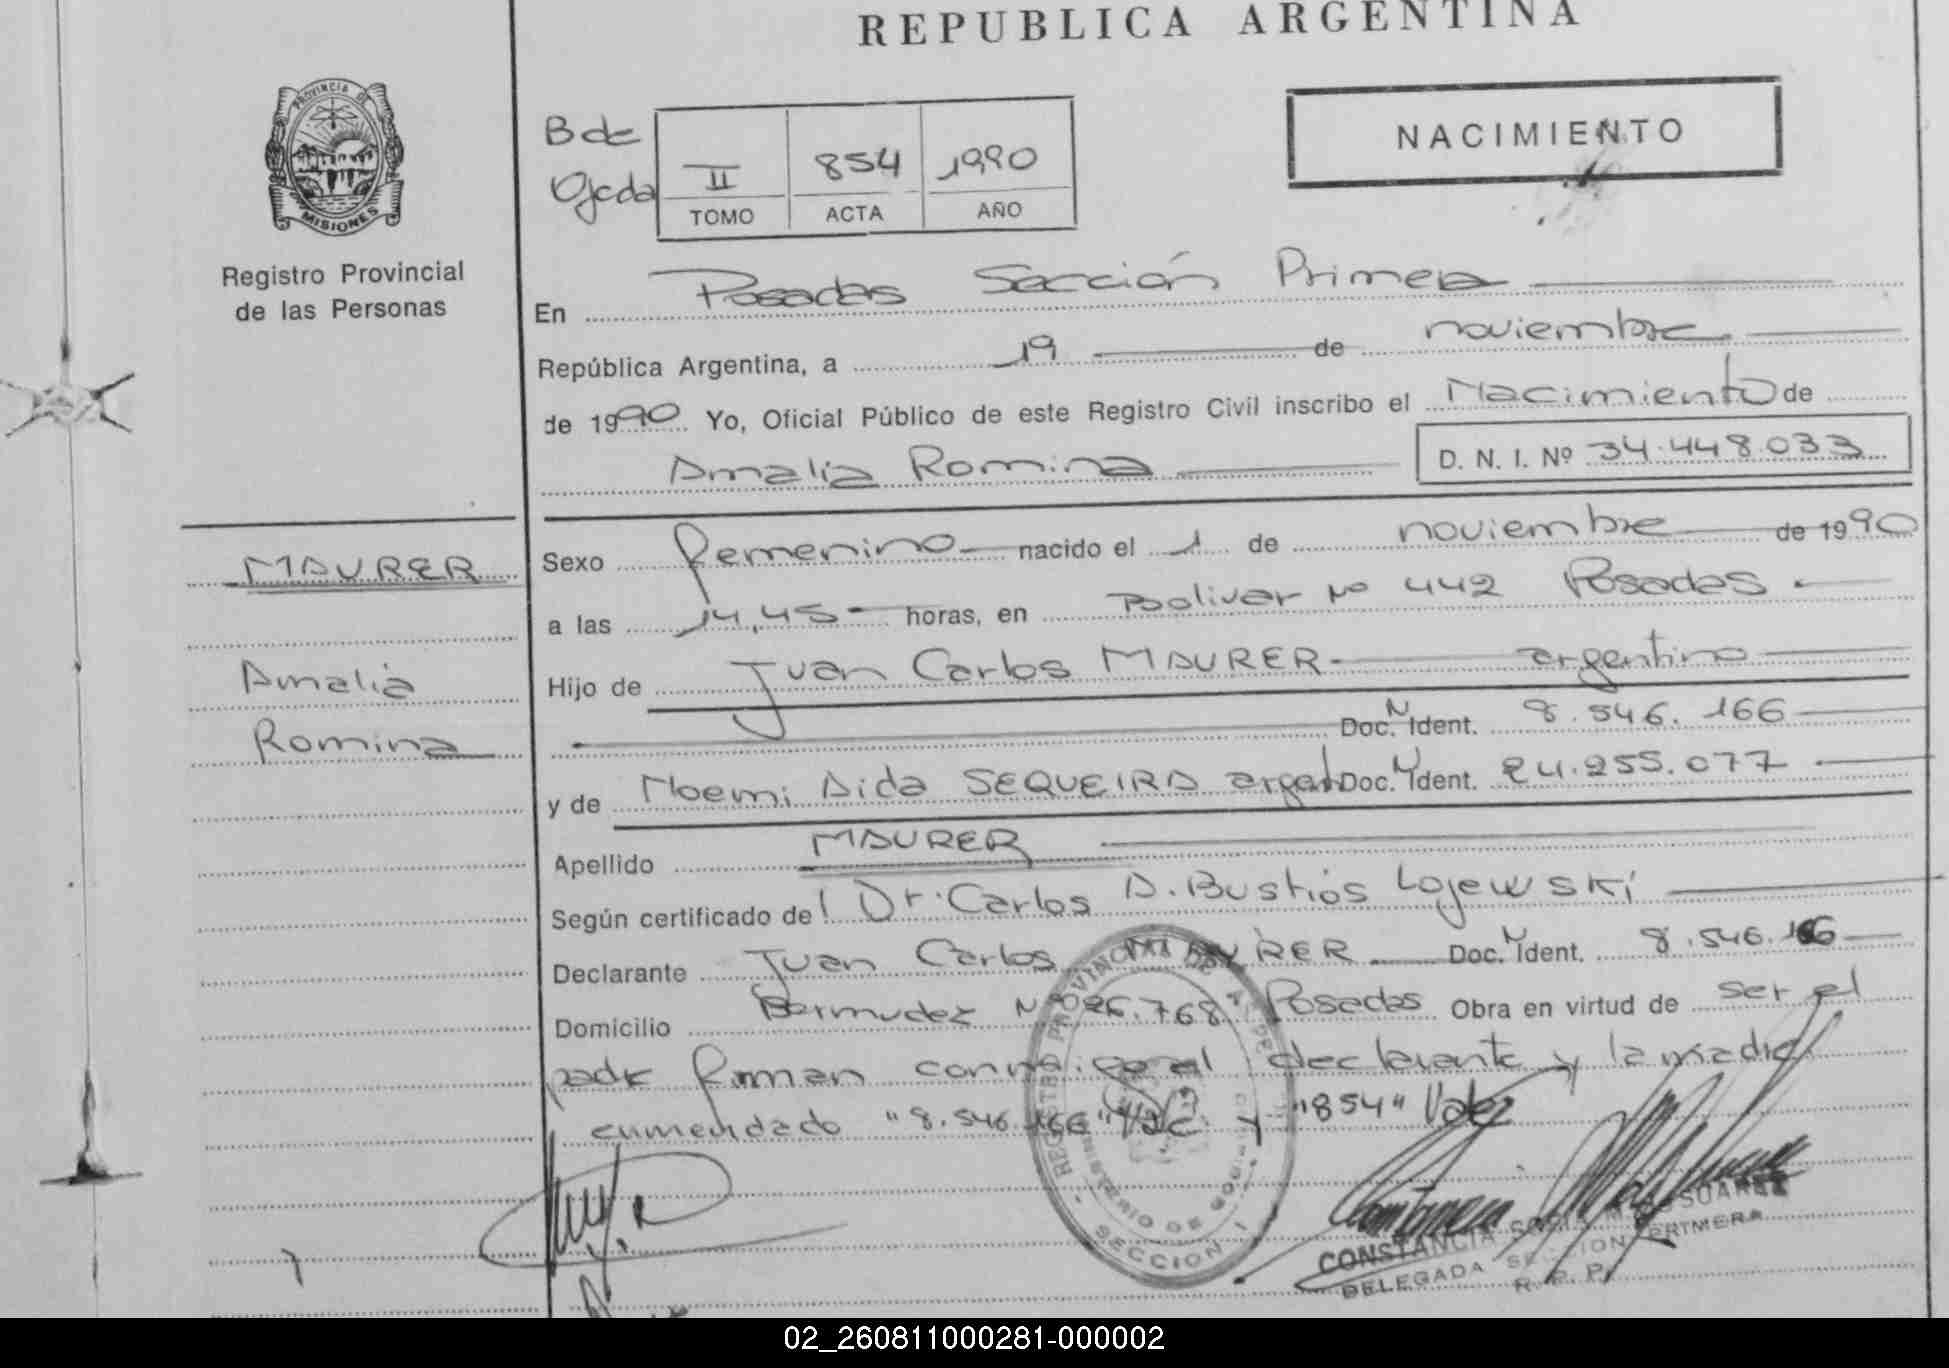 REPUBLICA ARGENTINA
PROVINCIA DE
MISIONES
Registro Provincial
de las Personas
B de
Ojeda
II 854 1990
TOMO ACTA AÑO
NACIMIENTO
En Posadas Sección Primera
República Argentina, a 19 de noviembre
de 1990 Yo, Oficial Público de este Registro Civil inscribo el Nacimiento de
Amalia Romina D. N. I. Nº 34.448.033
MAURER
Amalia
Romina
Sexo femenino nacido el 1 de noviembre de 1990
a las 14,45 horas, en Bolivar Nº 442 Posadas
Hijo de Juan Carlos MAURER argentino
Doc. N Ident. 8.546.166
y de Noemi Aida SEQUEIRA argent Doc. N Ident. 24.255.077
Apellido MAURER
Según certificado de Dr. Carlos A. Bustios Lojewski
Declarante Juan Carlos MAURER Doc. N Ident. 8.546.166
Domicilio Bermudez Nº 768 Posadas Obra en virtud de ser el
padre firman conmigo el declarante y la madre
enmendado "8.546.166" Vale y "854" Vale
REGISTRO PROVINCIAL DE
MINISTERIO DE GOBIERNO
SECCION 1
CONSTANCIA SOFIA M. SUAREZ
DELEGADA SECCION PRIMERA
R. P. P.
02_260811000281-000002